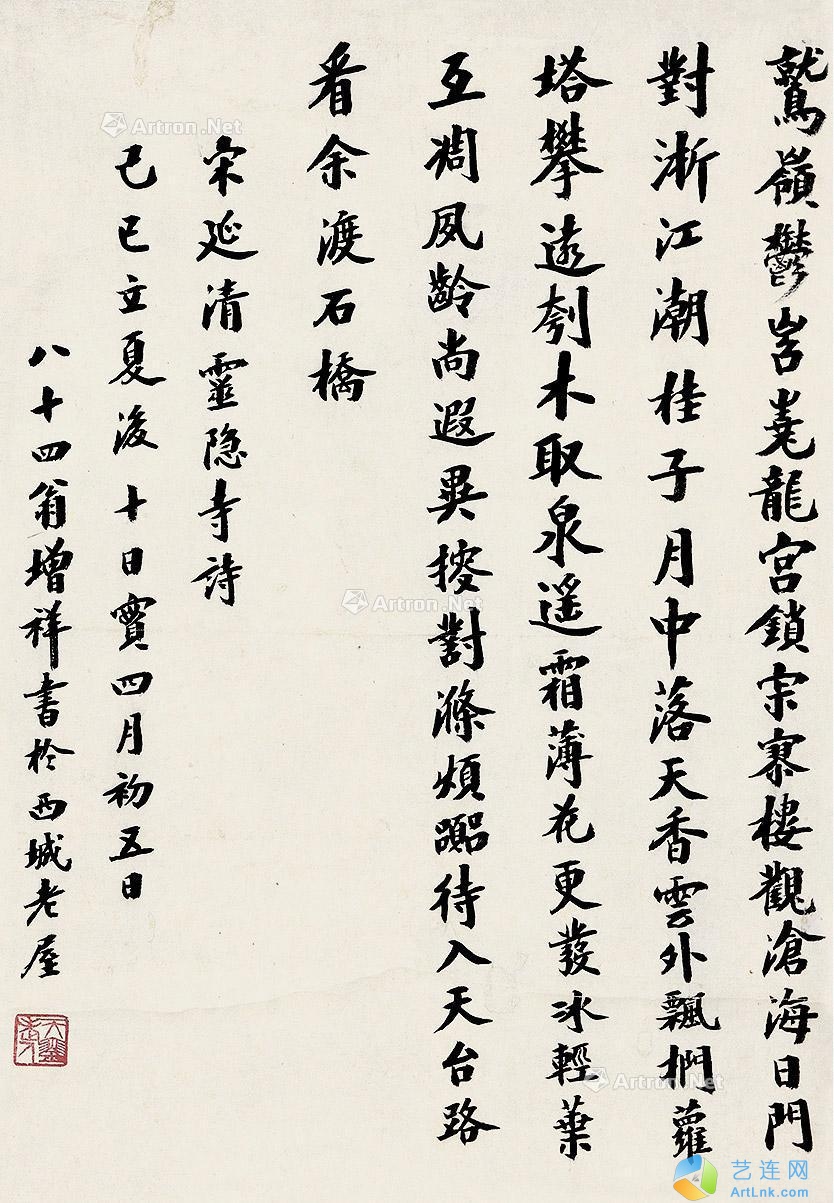 鷲嶺鬱岧嶤龍宮鎖寂寥樓觀滄海日門
對浙江潮桂子月中落天香雲外飄捫蘿
塔攀遠刳木取泉遙霜薄花更發冰輕葉
互凋夙齡尚遐異搜對滌煩囂待入天台路
看余渡石橋
宋延清靈隱寺詩
己巳立夏後十日實四月初五日
八十四翁增祥書於西城老屋
天琴老人
Artron.Net
Artron.Net
Artron.Net
Artron.Net
艺连网
ArtLnk.com